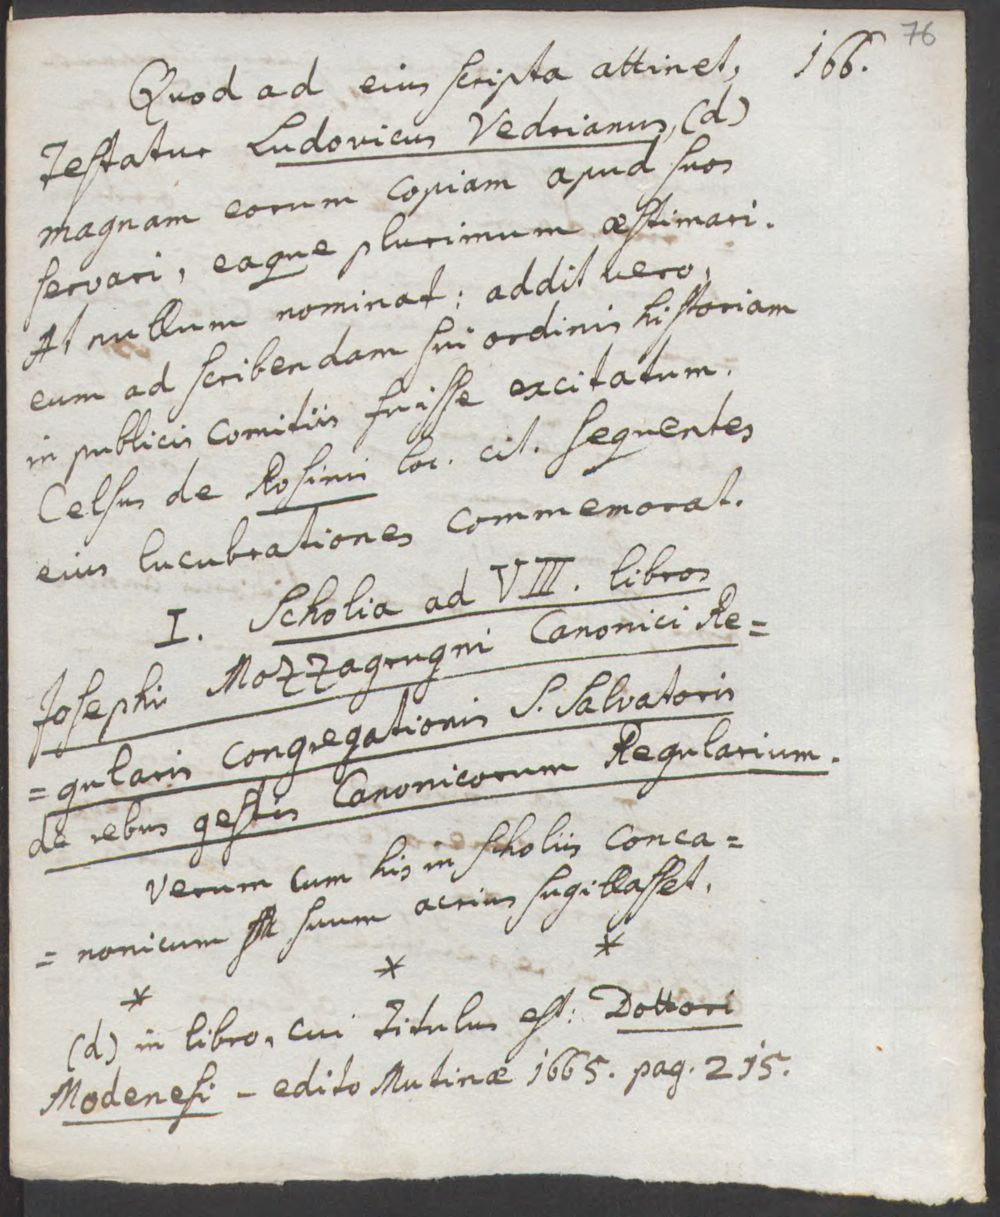 76
166.
Quod ad eius scripta attinet,
Testatur Ludovicus Vedrianus, (d)
magnam eorum copiam apud suos
servari, eaque plurimum æstimari.
At nullum nominat; addit vero,
eum ad scribendam sui ordinis historiam
in publicis Comitiis fuisse excitatum.
Celsus de Rosinis loc. cit. sequentes
eius lucubrationes commemorat.
I. Scholia ad VIII. libros
Josephi Mozzagrugni Canonici Re=
=gularis Congregationis S. Salvatoris
de rebus gestis Canonicorum Regularium.
Verum cum his in scholiis conca=
=nonicum suum acrius sugillasset,
* * *
(d) in libro, cui Titulus est: Dottori
Modenesi - edito Mutinæ 1665. pag. 215.